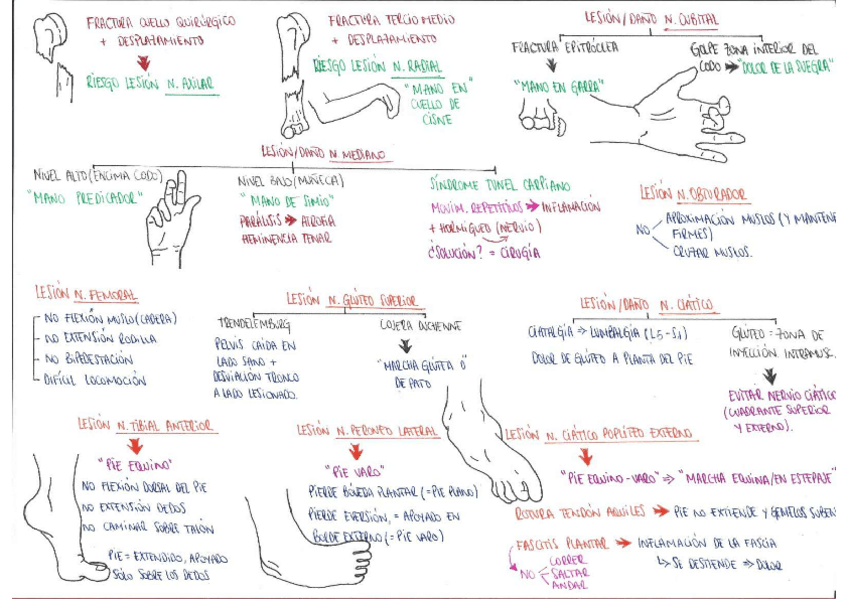 FRACTURA CUELLO QUIRÚRGICO
+ DESPLAZAMIENTO
RIESGO LESIÓN N. AXILAR
FRACTURA TERCIO MEDIO
+ DESPLAZAMIENTO
RIESGO LESIÓN N. RADIAL
"MANO EN"
CUELLO DE
CISNE
LESIÓN/DAÑO N. CUBITAL
FRACTURA EPITRÓCLEA
"MANO EN GARRA"
GOLPE ZONA INTERIOR DEL
CODO → "DOLOR DE LA SUEGRA"
LESIÓN/DAÑO N. MEDIANO
NIVEL ALTO (ENCIMA CODO)
"MANO PREDICADOR"
NIVEL BAJO (MUÑECA)
"MANO DE SIMIO"
PARÁLISIS → ATROFIA
HEMINENCIA TENAR
SÍNDROME TUNEL CARPIANO
MOVIM. REPETITIVOS → INFLAMACIÓN
+ HORMIGUEO (NERVIO)
¿SOLUCIÓN? = CIRUGÍA
LESIÓN N. OBTURADOR
NO
APROXIMACIÓN MUSLOS (Y MANTENE
FIRMES)
CRUZAR MUSLOS.
LESIÓN N. FEMORAL
- NO FLEXIÓN MUSLO (CADERA)
- NO EXTENSIÓN RODILLA
- NO BIPEDESTACIÓN
- DIFÍCIL LOCOMOCIÓN
LESIÓN N. GLÚTEO SUPERIOR
TRENDELEMBURG
PELVIS CAIDA EN
LADO SANO +
DESVIACIÓN TRONCO
A LADO LESIONADO.
COJERA DUCHENNE
"MARCHA GLÚTEA O"
DE PATO
LESIÓN/DAÑO N. CIÁTICO
CIATALGÍA ⇒ LUMBALGÍA (L5-S1)
DOLOR DE GLÚTEO A PLANTA DEL PIE
GLÚTEO = ZONA DE
INYECCIÓN INTRAMUSC.
EVITAR NERVIO CIÁTIC
(CUADRANTE SUPERIOR
Y EXTERNO).
LESIÓN N. TIBIAL ANTERIOR
"PIE EQUINO"
NO FLEXIÓN DORSAL DEL PIE
NO EXTENSIÓN DEDOS
NO CAMINAR SOBRE TALÓN
PIE = EXTENDIDO, APOYADO
SÓLO SOBRE LOS DEDOS
LESIÓN N. PERONEO LATERAL
"PIE VARO"
PIERDE BÓVEDA PLANTAR (= PIE PLANO)
PIERDE EVERSIÓN, = APOYADO EN
BORDE EXTERNO (= PIE VARO)
LESIÓN N. CIÁTICO POPLÍTEO EXTERNO
"PIE EQUINO-VARO" ⇒ "MARCHA EQUINA/EN ESTEPAJE"
ROTURA TENDÓN AQUILES → PIE NO EXTIENDE Y GEMELOS SUBEN
FASCITIS PLANTAR → INFLAMACIÓN DE LA FASCIA
↳ SE DESTIENDE ⇒ DOLOR
NO
CORRER
SALTAR
ANDAR